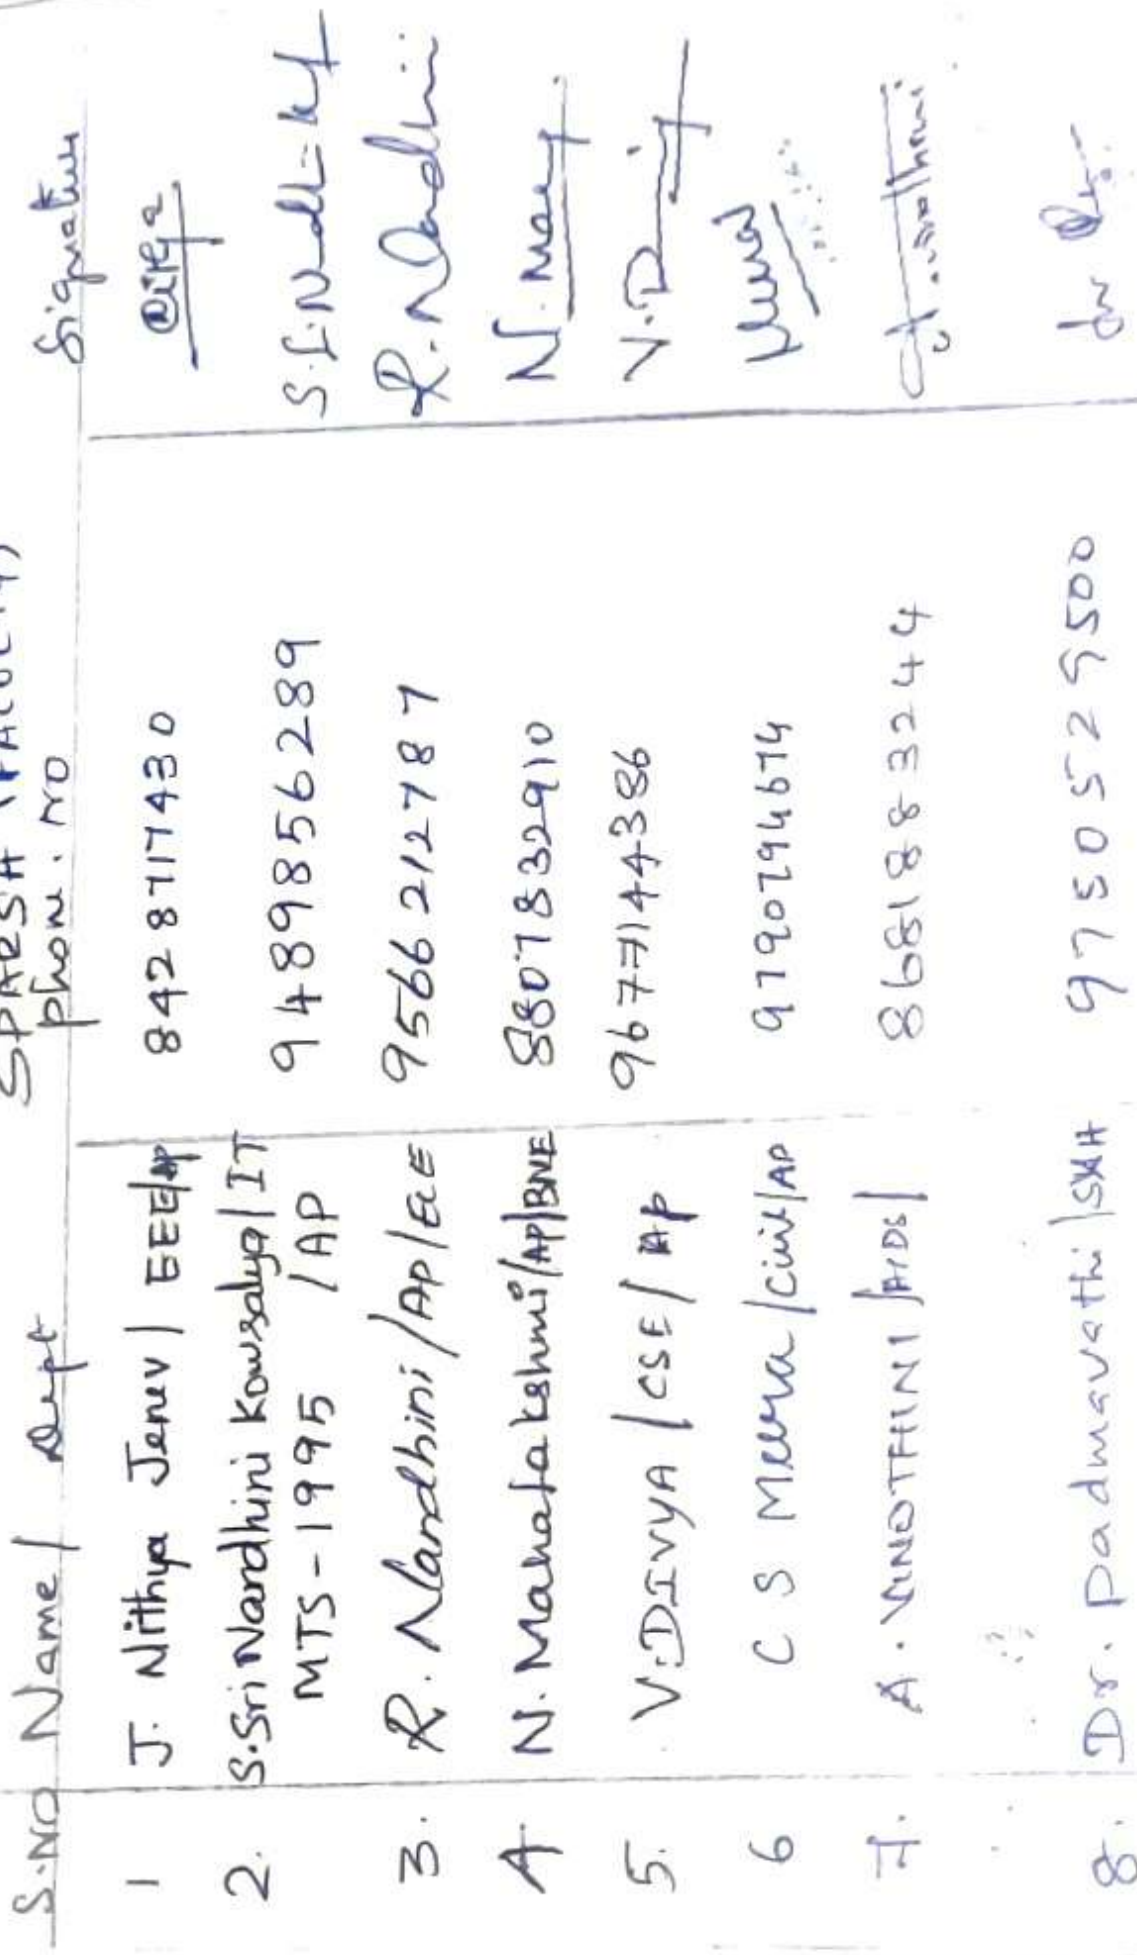 SPARSH (FACULTY)
S.NO Name / Dept phone. no Signature
1 J. Nithya Jenev / EEE/AP 8428717430
2. S.Sri Nandhini Kowsalya / IT 9489856289
MTS-1995 /AP
3. R. Nandhini / AP / ECE 9566212787 R.Nadhini
4 N. Mahalakshmi / AP / BME 8807832910
5. V.DIVYA / CSE / AP 9677144386
6 C S Meera / Civil / AP 9790794674 Meera
7. A. VINOTHINI / AIDS / 8681883244
8. Dr. Padmavathi / S&H 9750529500